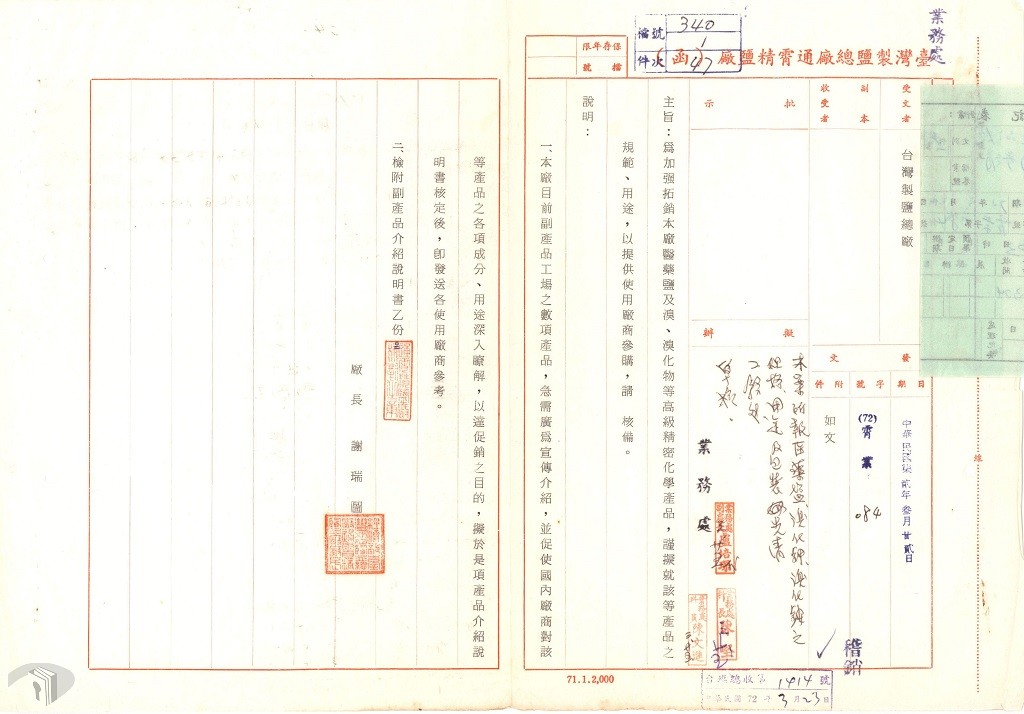 業務處
檔號 340
件次 1
47
保存年限
檔號
臺灣製鹽總廠通霄精鹽廠（函）
受文者
台灣製鹽總廠
副本收受者
批示
擬辦
發文
日期
中華民國柒貳年叁月廿貳日
字號
(72)霄業
084
附件
如文
主旨：爲加强拓銷本廠醫藥鹽及溴、溴化物等高級精密化學產品，謹擬就該等產品之
規範、用途，以提供使用廠商參購，請 核備。
說明：
一、本廠目前副產品工場之數項產品，急需廣爲宣傳介紹，並促使國內廠商對該
等產品之各項成分、用途深入瞭解，以達促銷之目的，擬於是項產品介紹說
明書核定後，卽發送各使用廠商參考。
二、檢附副產品介紹說明書乙份
廠長 謝瑞圖
業務處
稽銷
線
台鹽總收第1414號
中華民國72年3月23日
71.1.2,000